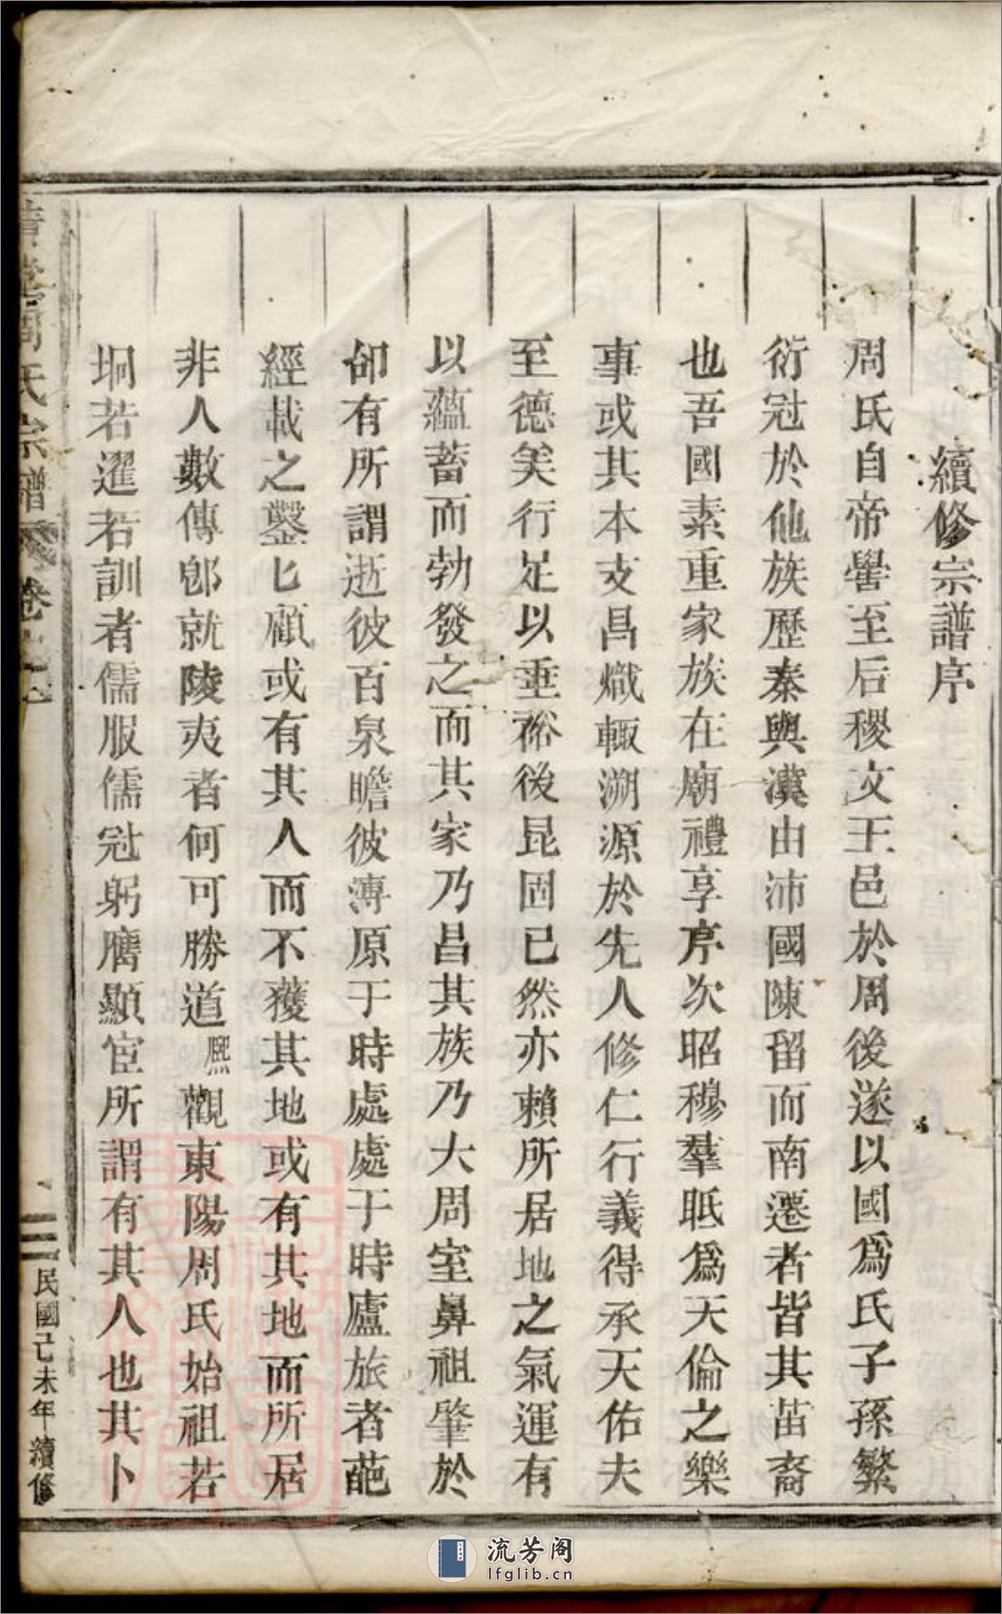 續修宗譜序
周氏自帝嚳至后稷文王邑於周後遂以國爲氏子孫繁
衍冠於他族歷秦與漢由沛國陳留而南遷者皆其苗裔
也吾國素重家族在廟禮享序次昭穆羣眡爲天倫之樂
事或其本支昌熾輙溯源於先人修仁行義得承天佑夫
至德美行足以垂裕後昆固已然亦賴所居地之氣運有
以蘊蓄而勃發之而其家乃昌其族乃大周室鼻祖肇於
邰有所謂逝彼百泉瞻彼溥原于時處處于時廬旅者葩
經載之鑿匕顧或有其人而不獲其地或有其地而所居
非人數傳卽就陵夷者何可勝道熙觀東陽周氏始祖若
坰若暹若訓者儒服儒冠躬膺顯宦所謂有其人也其卜
周氏宗譜 卷之
民國己未年續修
流芳阁
lfglib.cn